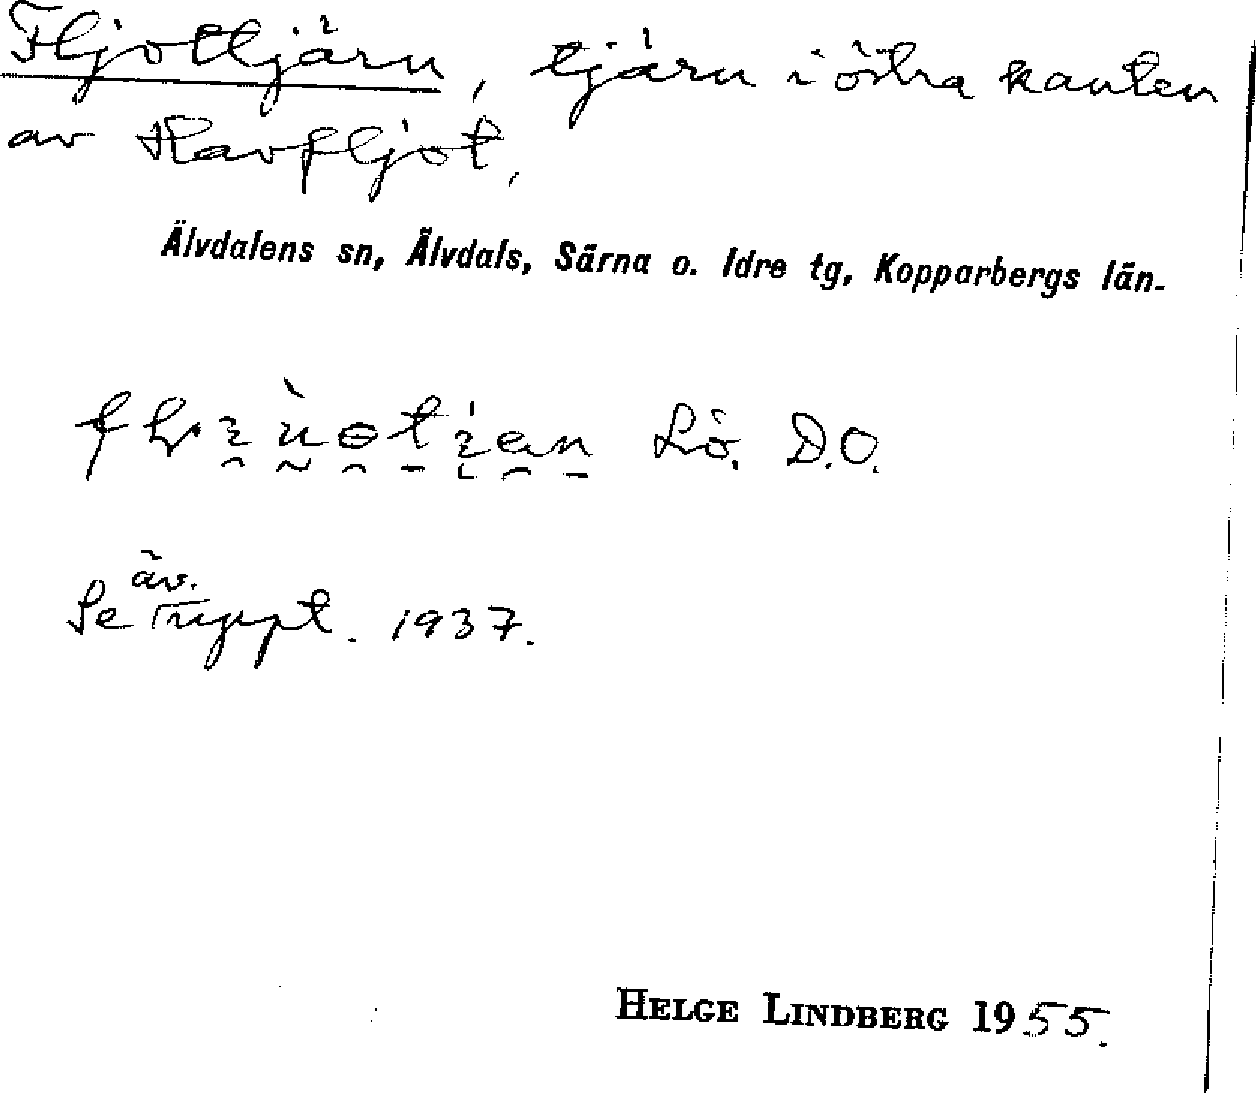 Fljottjärn, tjärn i östra kanten
av Havfljot,
Älvdalens sn, Älvdals, Särna o. Idre tg, Kopparbergs län.
Lö. D.O.
äv.
Se Tryspt. 1937.
HELGE LINDBERG 1955.